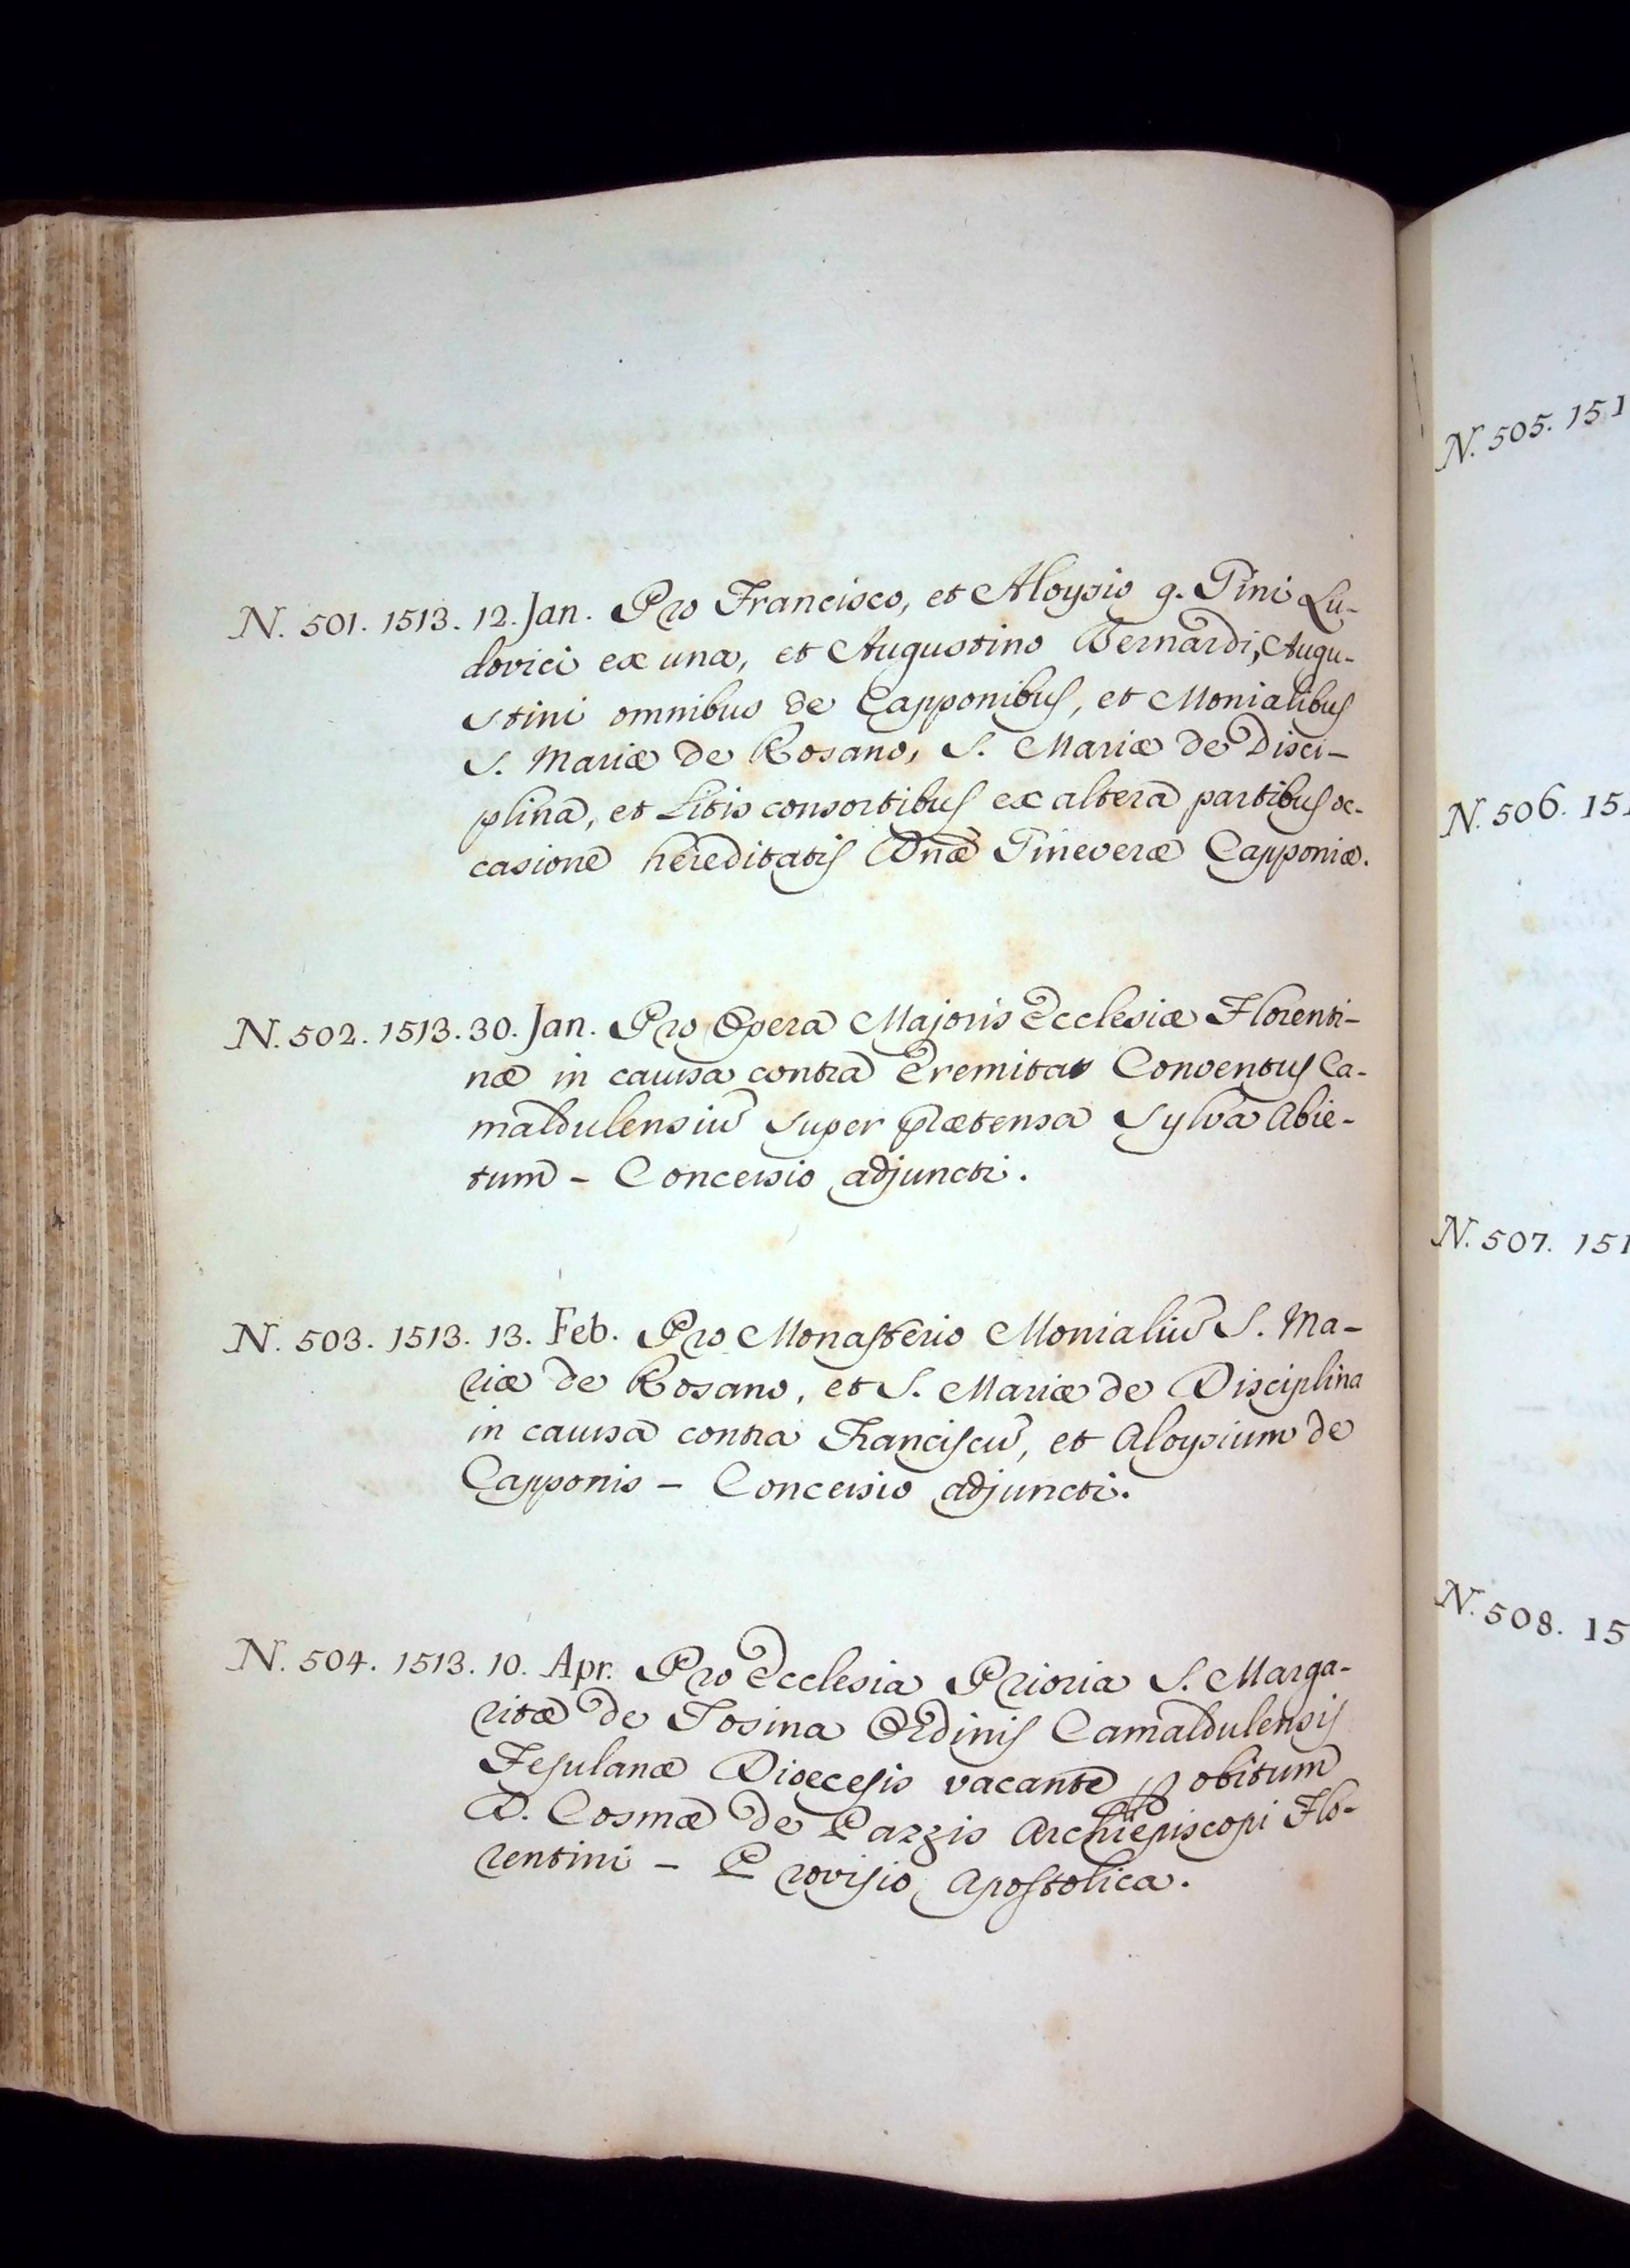 N. 501. 1513. 12. Jan. Pro Francisco, et Aloysio q. Gini Lu-
dovici ex una, et Augustino Bernardi, Augu-
stini omnibus de Capponibus, et Monialibus
S. Mariæ de Rosano, S. Mariæ de Disci-
plina, et Litis consortibus ex altera partibus oc-
casione hereditatis Dnæ Gineveræ Capponiæ.
N. 502. 1513. 30. Jan. Pro Opera Majoris Ecclesiæ Florenti-
næ in caussa contra Eremitas Conventus Ca-
maldulensiu͂ super prætensa Sylva Abie-
tum - Concessio adjuncti.
N. 503. 1513. 13. Feb. Pro Monasterio Monialiu͂ S. Ma-
riæ de Rosano, et S. Mariæ de Disciplina
in caussa contra Franciscu͂, et Aloysium de
Capponis - Concessio adjuncti.
N. 504. 1513. 10. Apr. Pro Ecclesia Prioria S. Marga-
ritæ de Tosina Ordinis Camaldulensis
Fesulanæ Dioecesis vacante ꝑ obitum
D. Cosmæ de Pazzis Archiepiscopi Flo-
rentini - Provisio Apostolica.
N. 505. 151
N. 506. 151
N. 507. 151
N. 508. 15